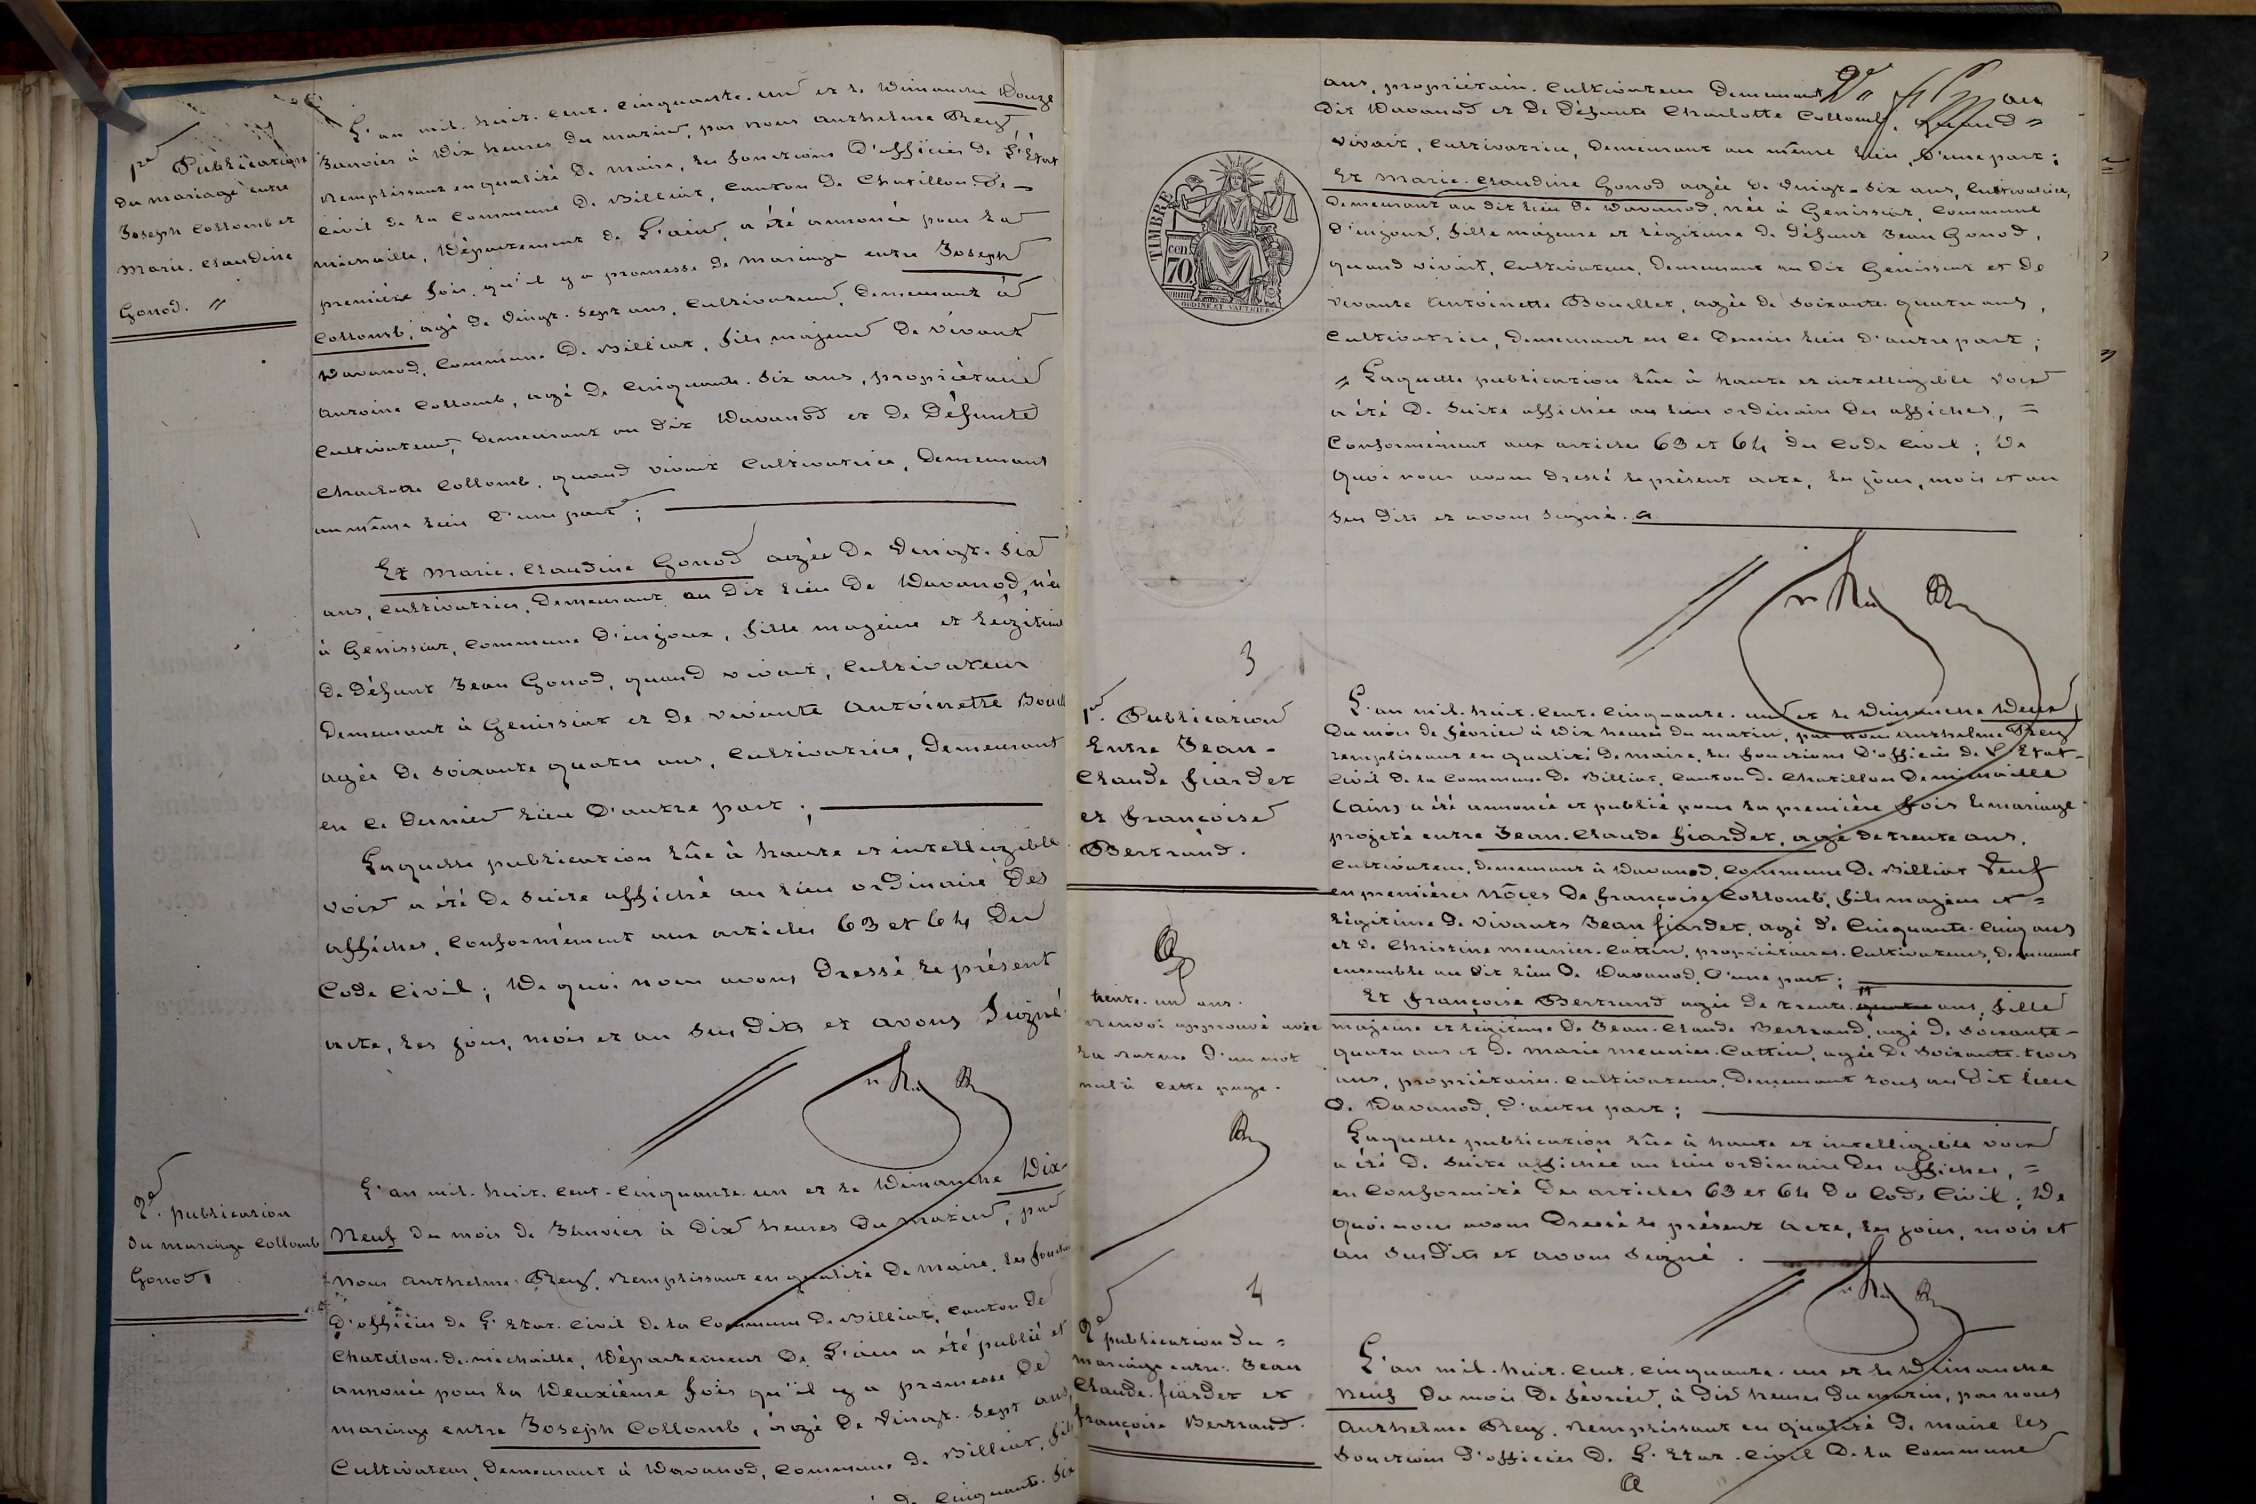 1re Publication
du mariage entre
Joseph Collomb et
Marie. Claudine
Gonod. //
L'an mil. huit. cent. cinquante. un et le Dimanche Douze
Janvier à Dix heures du matin, par nous anthelme Rey,
Remplissant en qualité de maire, les fonctions d'officier de l'Etat
civil de la commune de Billiat, canton de Chatillon. de=
michaille, Département de l'ain, a été annoncée pour la
première fois, qu'il y a promesse de mariage entre Joseph
Collomb, agé de vingt. sept ans, cultivateur, demeurant à
Davanod, commune de Billiat, fils majeur de vivant
antoine Collomb, agé de cinquante. six ans, propriétaire
cultivateur, demeurant au dit Davanod et de Défunte
Charlotte Collomb, quand vivait cultivatrice, Demeurant
au même lieu d'une part ;
Et Marie. Claudine Gonod agée de vingt. six
ans, cultivatrice, demeurant, au dit lieu de Davanod, née
à Genissiat, commune d'injoux, fille majeure et légitime
de défunt Jean Gonod, quand vivait, cultivateur
demeurant à Genissiat et de vivante antoinette Bouill
agée de soixante quatre ans, cultivatrice, demeurant
en ce dernier lieu d'autre part ;
Laquelle publication lûe à haute et intelligible
voix a été de suite affiché au lieu ordinaire des
affiches, conformément aux articles 63 et 64 du
Code Civil ; De quoi nous avons dressé le présent
acte, les jour, mois et an sus dits et avons signé
2e. publication
du mariage Collomb
Gonod
L'an mil. huit. cent. cinquante. un et le Dimanche Dix-
Neuf du mois de Janvier à dix heures du matin, par
nous anthelme Rey, Remplissant en qualité de maire, les fonctions
d'officier de l'Etat. civil de la commune de Billiat, canton de
Chatillon. de. michaille, Département de l'ain a été publié et
annoncé pour la Deuxième fois qu'il y a promesse de
mariage entre Joseph Collomb, agé de vingt. sept ans,
Cultivateur, demeurant à Davanod, commune de Billiat, fils
de cinquante. six
ans, propriétaire. cultivateur demeurant au
dit Davanod et de défunte Charlotte Collomb, quand =
vivait, cultivatrice, demeurant au même lieu d'une part ;
TIMBRE
cen
70
Et Marie. Claudine Gonod agée de vingt. six ans, cultivatrice,
demeurant au dit lieu de Davanod, née à Genissiat, commune
d'injoux, fille majeure et légitime de défunt Jean Gonod,
quand vivait, cultivateur, demeurant au dit Génissiat et de
vivante antoinette Bouillet, agée de soixante. quatre ans,
cultivatrice, demeurant en ce dernier lieu d'autre part ;
= Laquelle publication lûe à haute et intelligible voix
a été de suite affichée au lieu ordinaire des affiches, =
Conformément aux articles 63 et 64 du Code Civil ; De
quoi nous avons dressé le présent acte, les jour, mois et an
sus dits et avons signé.
3
1re. Publication
Entre Jean-
Claude fiardet
et françoise
Bertrand.
L'an mil. huit. cent. cinquante. un et le Dimanche Deux
du mois de février à dix heures du matin, par nous anthelme Rey
remplissant en qualité de maire, les fonctions d'officier de l'Etat-
civil de la commune de Billiat, canton de Chatillon de michaille
(ain) a été annoncé et publié pour la première fois le mariage
projeté entre Jean. Claude fiardet, agé de trente ans.
cultivateur, demeurant à Davanod, commune de Billiat veuf
en premières nôces de françoise Collomb, fils majeur et =
légitime de vivants Jean fiardet, agé de cinquante. cinq ans
et de Christine meunier. Cattin, propriétaires. cultivateurs, demeurant
ensemble au dit lieu de Davanod, d'une part ;
Et françoise Bertrand agée de trente quatre ans, fille
majeure et légitime de Jean. Claude Bertrand, agé de soixante-
quatre ans et de marie meunier. Cattin, agée de soixante. trois
ans, propriétaires. cultivateurs, demeurant tous au dit lieu
de Davanod, d'autre part ;
trente. un ans.
renvoi approuvé avec
la rature d'un mot
nul à cette page.
Laquelle publication lûe à haute et intelligible voix
a été de suite affichée au lieu ordinaire des affiches, =
en conformité des articles 63 et 64 du Code Civil ; De
quoi nous avons dressé le présent acte, les jour, mois et
an sus dits et avons signé.
4
2e publication du =
mariage entre. Jean
Claude. fiardet et
françoise Bertrand.
L'an mil. huit. cent. cinquante. un et le Dimanche
neuf du mois de février, à dix heures du matin, par nous
anthelme Rey, remplissant en qualité de maire les
fonctions d'officier de l'Etat. civil de la commune